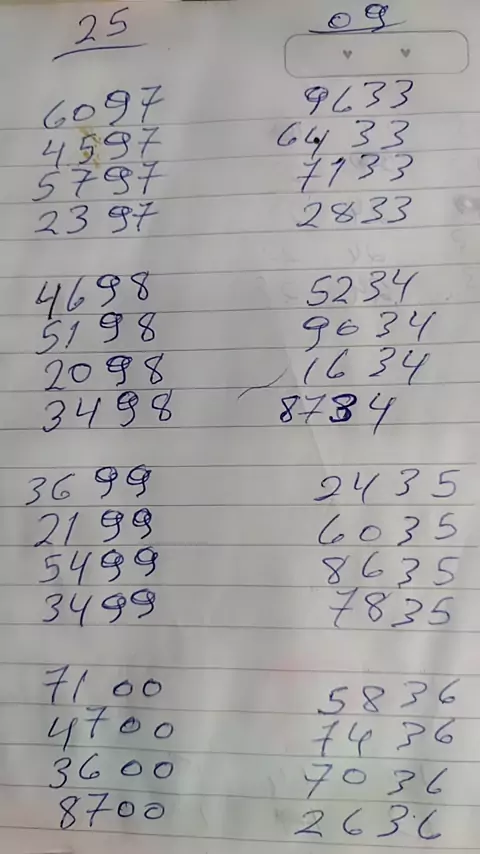 25 09
6097 9633
4597 6433
5797 7133
2397 2833
4698 5234
5198 9034
2098 1634
3498 8734
3699 2435
2199 6035
5499 8635
3499 7835
7100 5836
4700 7436
3600 7036
8700 2636